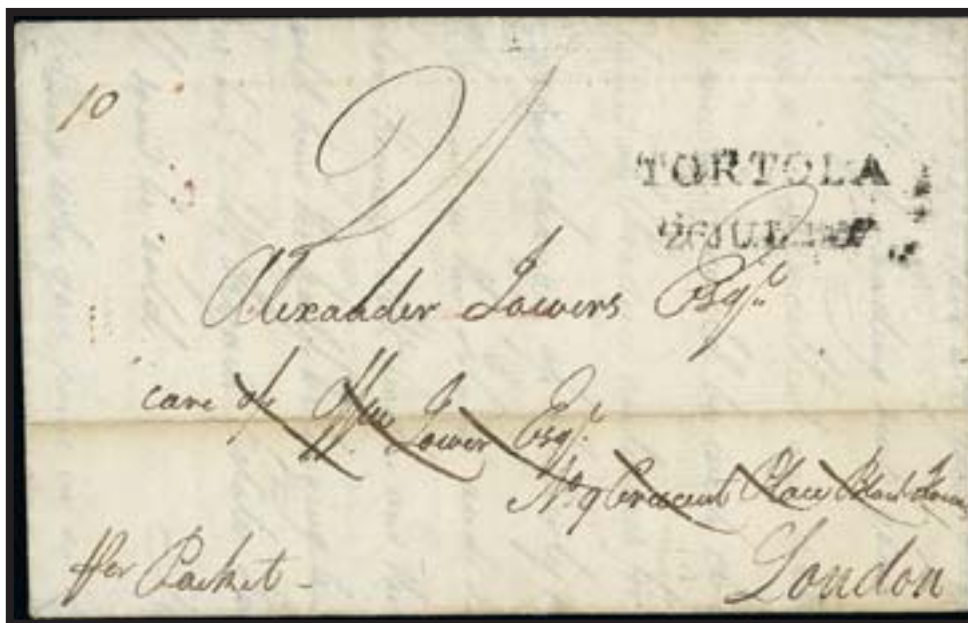 10
2/
TORTOLA
26JUL
Alexander Towers Esqr.
care of Wm Tower Esqr.
No. 9 Crescent Place
London
Per Packet -